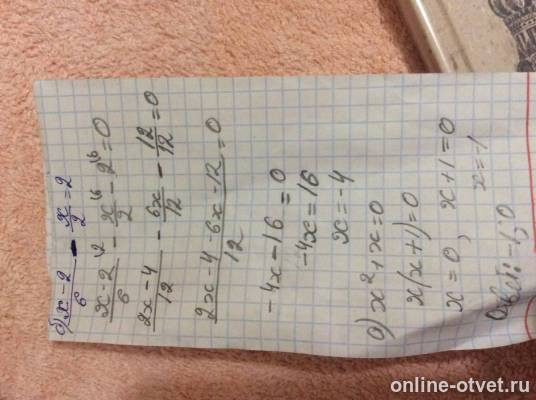 б) x-2/6 - x/2 = 2
x-2/6 \2 - x/2 \6 - 2 \6 = 0
2x-4/12 - 6x/12 - 12/12 = 0
2x-4-6x-12/12 = 0
-4x-16=0
-4x=16
x=-4
а) x²+x=0
x(x+1)=0
x=0, x+1=0
x=-1
Ответ: -1, 0
online-otvet.ru